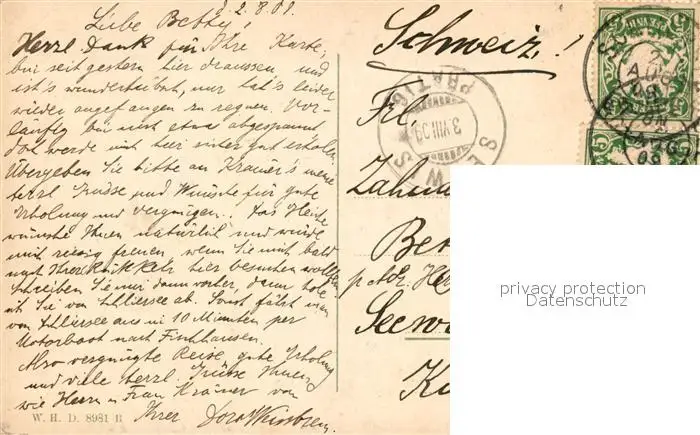 2.8.09.
Liebe Bethy!
Herzl. Dank für Ihre Karte,
bin seit gestern hier draussen und
ist's wunderhübsch, nur hat's leider
wieder angefangen zu regnen. Vor-
läufig bin ich etwas abgespannt,
doch werde mich hier sicher gut erholen.
Übergeben Sie bitte an Krämer's meine
herzl. Grüsse und Wünsche für gute
Erholung und Vergnügen. Das Gleiche
wünsche Ihnen natürlich und würde
mich riesig freuen, wenn Sie mich bald
nach Ihrer Rückkehr hier besuchen wollten
Schreiben Sie mir dann vorher, dann hole
ich Sie von Schliersee ab. Sonst fährt man
von Schliersee aus in 10 Minuten per
Motorboot nach Fischhausen.
Also vergnügte Reise, gute Erholung
und viele herzl. Grüsse Ihnen
wie Herrn u. Frau Krämer von
Ihrer Dora
W. H. D. 8981 B
Schweiz!
Frl.
PRÄTIG
3.VIII.09
SEEWIS
BAYERN
2
AUG
09
privacy protection
Datenschutz